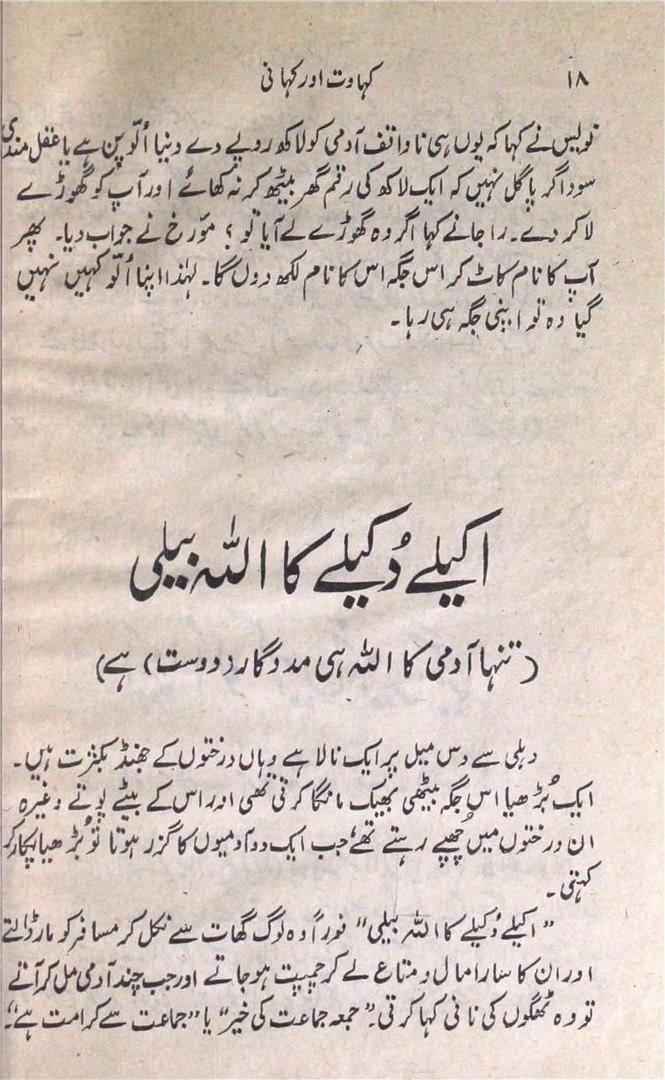 ۱۸ کہاوت اور کہانی
نویس نے کہا کہ یوں ہی ناواقف آدمی کو لاکھ روپے دے دینا اُلّو پن ہے یا عقل مندی
سوداگر پاگل نہیں کہ ایک لاکھ کی رقم گھر بیٹھ کر نہ کھائے اور آپ کو گھوڑے
لا کر دے۔ راجا نے کہا اگر وہ گھوڑے لے آیا تو ؟ مورّخ نے جواب دیا۔ پھر
آپ کا نام کاٹ کر اس جگہ اس کا نام لکھ دوں گا۔ لہٰذا اپنا اُلّو کہیں نہیں
گیا وہ تو اپنی جگہ ہی رہا۔
اکیلے دُکیلے کا اللہ بیلی
(تنہا آدمی کا اللہ ہی مددگار (دوست) ہے)
دہلی سے دس میل پر ایک نالا ہے وہاں درختوں کے جھنڈ بکثرت ہیں۔
ایک بُڑھیا اس جگہ بیٹھی بھیک مانگا کرتی تھی اور اس کے بیٹے پوتے وغیرہ
ان درختوں میں چھپے رہتے تھے جب ایک دو آدمیوں کا گزر ہوتا تو بُڑھیا پکار کر
کہتی۔
"اکیلے دُکیلے کا اللہ بیلی" فوراً وہ لوگ گھات سے نکل کر مسافر کو مار ڈالتے
اور ان کا سارا مال و متاع لے کر چمپت ہو جاتے اور جب چند آدمی مل کر آتے
تو وہ ٹھگوں کی نانی کہا کرتی۔ "جمعہ جماعت کی خیر" یا "جماعت سے کرامت ہے"۔